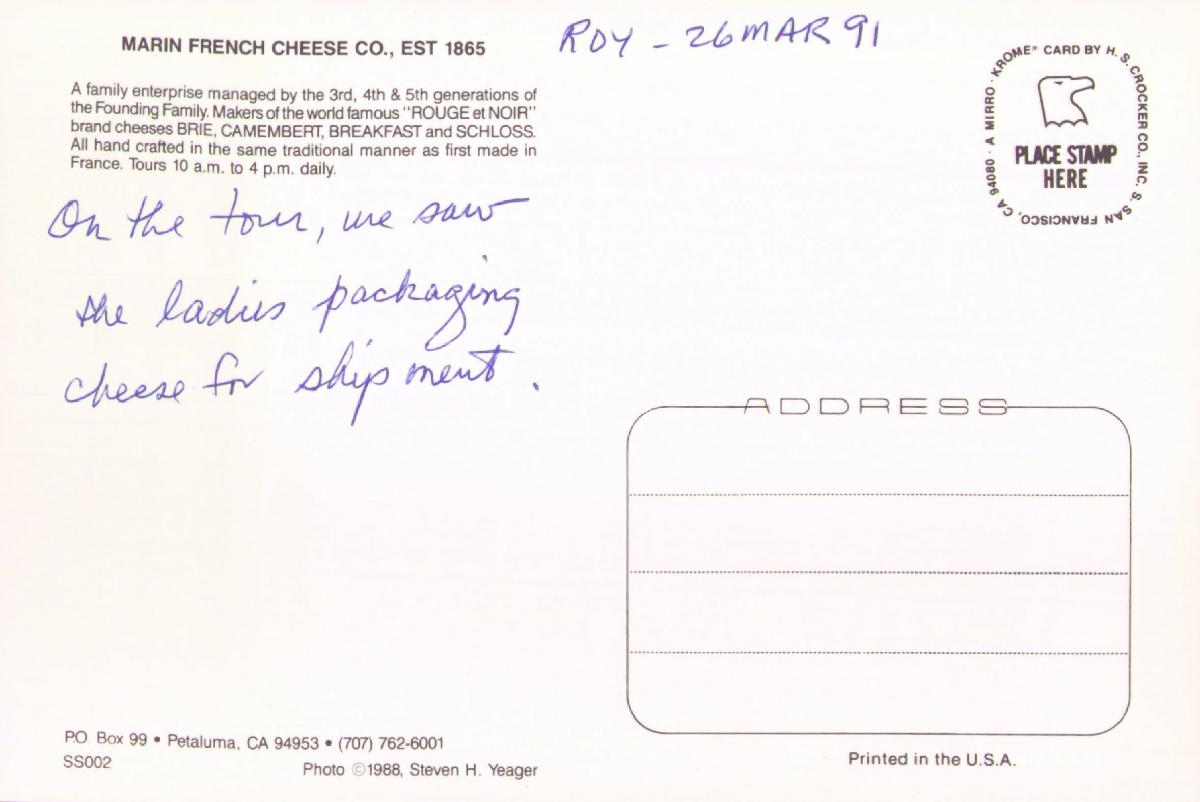 MARIN FRENCH CHEESE CO., EST 1865
ROY - 26 MAR 91
A family enterprise managed by the 3rd, 4th & 5th generations of
the Founding Family. Makers of the world famous "ROUGE et NOIR"
brand cheeses BRIE, CAMEMBERT, BREAKFAST and SCHLOSS.
All hand crafted in the same traditional manner as first made in
France. Tours 10 a.m. to 4 p.m. daily.
On the tour, we saw
the ladies packaging
cheese for shipment.
A MIRRO-KROME® CARD BY H. S. CROCKER CO., INC. S. SAN FRANCISCO, CA 94080
PLACE STAMP
HERE
ADDRESS
PO. Box 99 • Petaluma, CA 94953 • (707) 762-6001
SS002
Photo ©1988, Steven H. Yeager
Printed in the U.S.A.